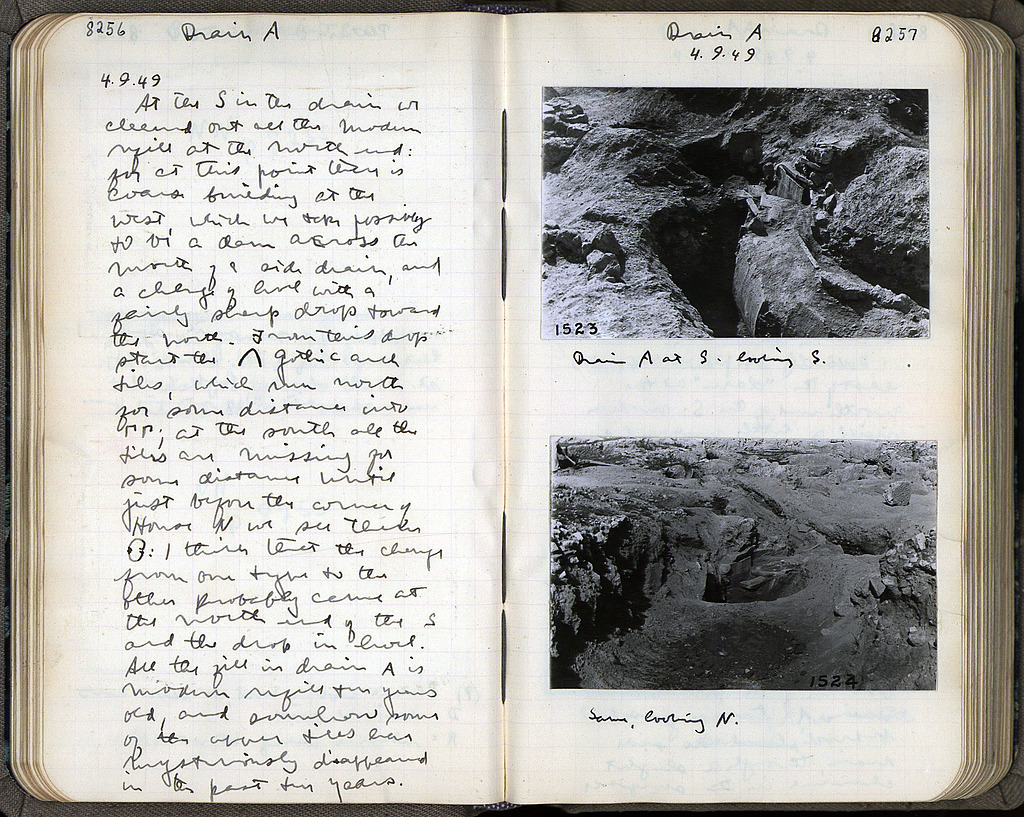 8256 Drain A
4.9.49
At the S in the drain we
cleaned out all the modern
refill at the north end:
for at this point there is
coarse building at the
west, which we take possibly
to be a dam across the
mouth of a side drain, and
a change of level with a
fairly sharp drop toward
the north. From this drop
start the Λ gothic arch
tiles, which run north
for some distance into
; at the south all the
tiles are missing for
some distance until
just before the corner of
House N we see
: I think that the change
from one type to the
other probably came at
the north end of the S
and the drop in level.
All the fill in drain A is
modern refill ten years
old, and somehow some
of the upper tiles have
mysteriously disappeared
in the past ten years.
Drain A 8257
4.9.49
1523
Drain A at S. looking S.
1524
Same, looking N.